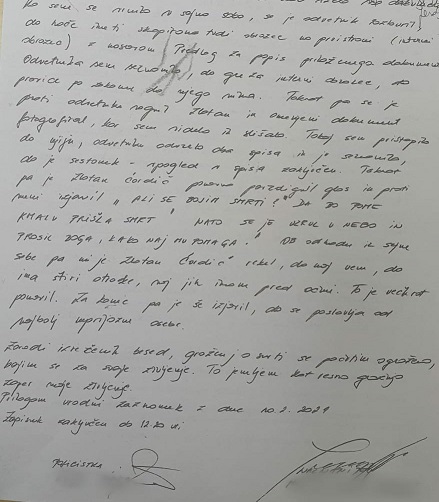 Ko smo se nahajali v sejni sobi, se je odvetnik
da hoče imeti skopirano tudi obrazec na prvi strani (interni
obrazec) z naslovom Predlog za popis priloženega dokumenta.
Odvetnika sem seznanila, da gre za interni obrazec, do
pravice po zakonu do njega nima. Takrat pa se je
proti odvetniku nagnil Zlatan in omenjeni dokument
fotografiral, kar sem videla iz hišabo. Takoj sem pristopila
do njiju, odvetniku odvzela oba spisa in je seznanila,
da je sestanek - vpogled v spisa zaključen. Takrat
pa je Zlatan Ćordić ponovno povzdignil glas in proti
meni izjavil " ALI SE BOJIM SMRTI? DA BO POME
KMALU PRIŠLA SMRT " NATO SE JE UZRL V NEBO IN
PROSIL BOGA, KAKO NAJ MU POMAGA." OB odhodu iz sejne
sobe pa mi je Zlatan Ćordić rekel, da naj vem, da
ima štiri otroke, naj jih imam pred očmi. To je večkrat
ponovil. Za konec pa je še izjavil, da se poslavlja od
najbolj neprijazne osebe.
Zaradi izrečenih besed, grožnj o smrti se počutim ogroženo,
bojim se za svoje življenje. To jemljem kot resno grožnjo
zoper moje življenje.
Prilagam uradni zaznamek z dne 10.2.2021
Zapisnik zaključen ob 12.20 uri
POLICISTKA: